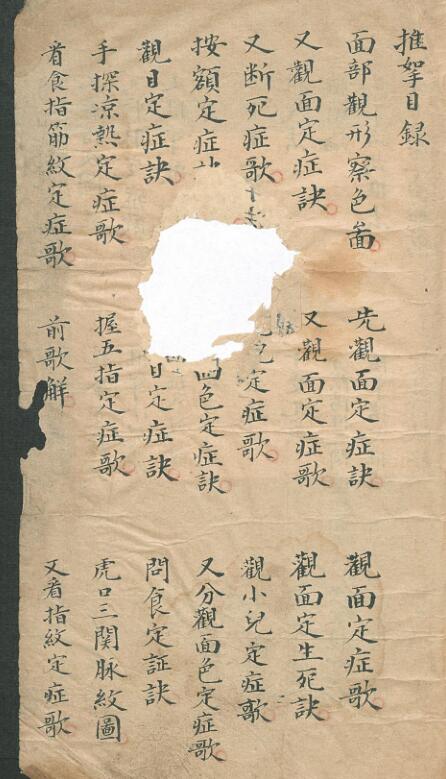 推拏目録
面部觀形察色啚 先觀面定症訣 觀面定症歌
又觀面定症訣 又觀面定症歌 觀面定生死訣
又断死症歌 定症歌 觀小兒定症歌
按額定症 色定症訣 又分觀面色定症歌
觀目定症訣 目定症訣 問食定証訣
手探凉熱定症歌 握五指定症歌 虎口三関脉紋圖
看食指筋紋定症歌 前歌解 又看指紋定症歌